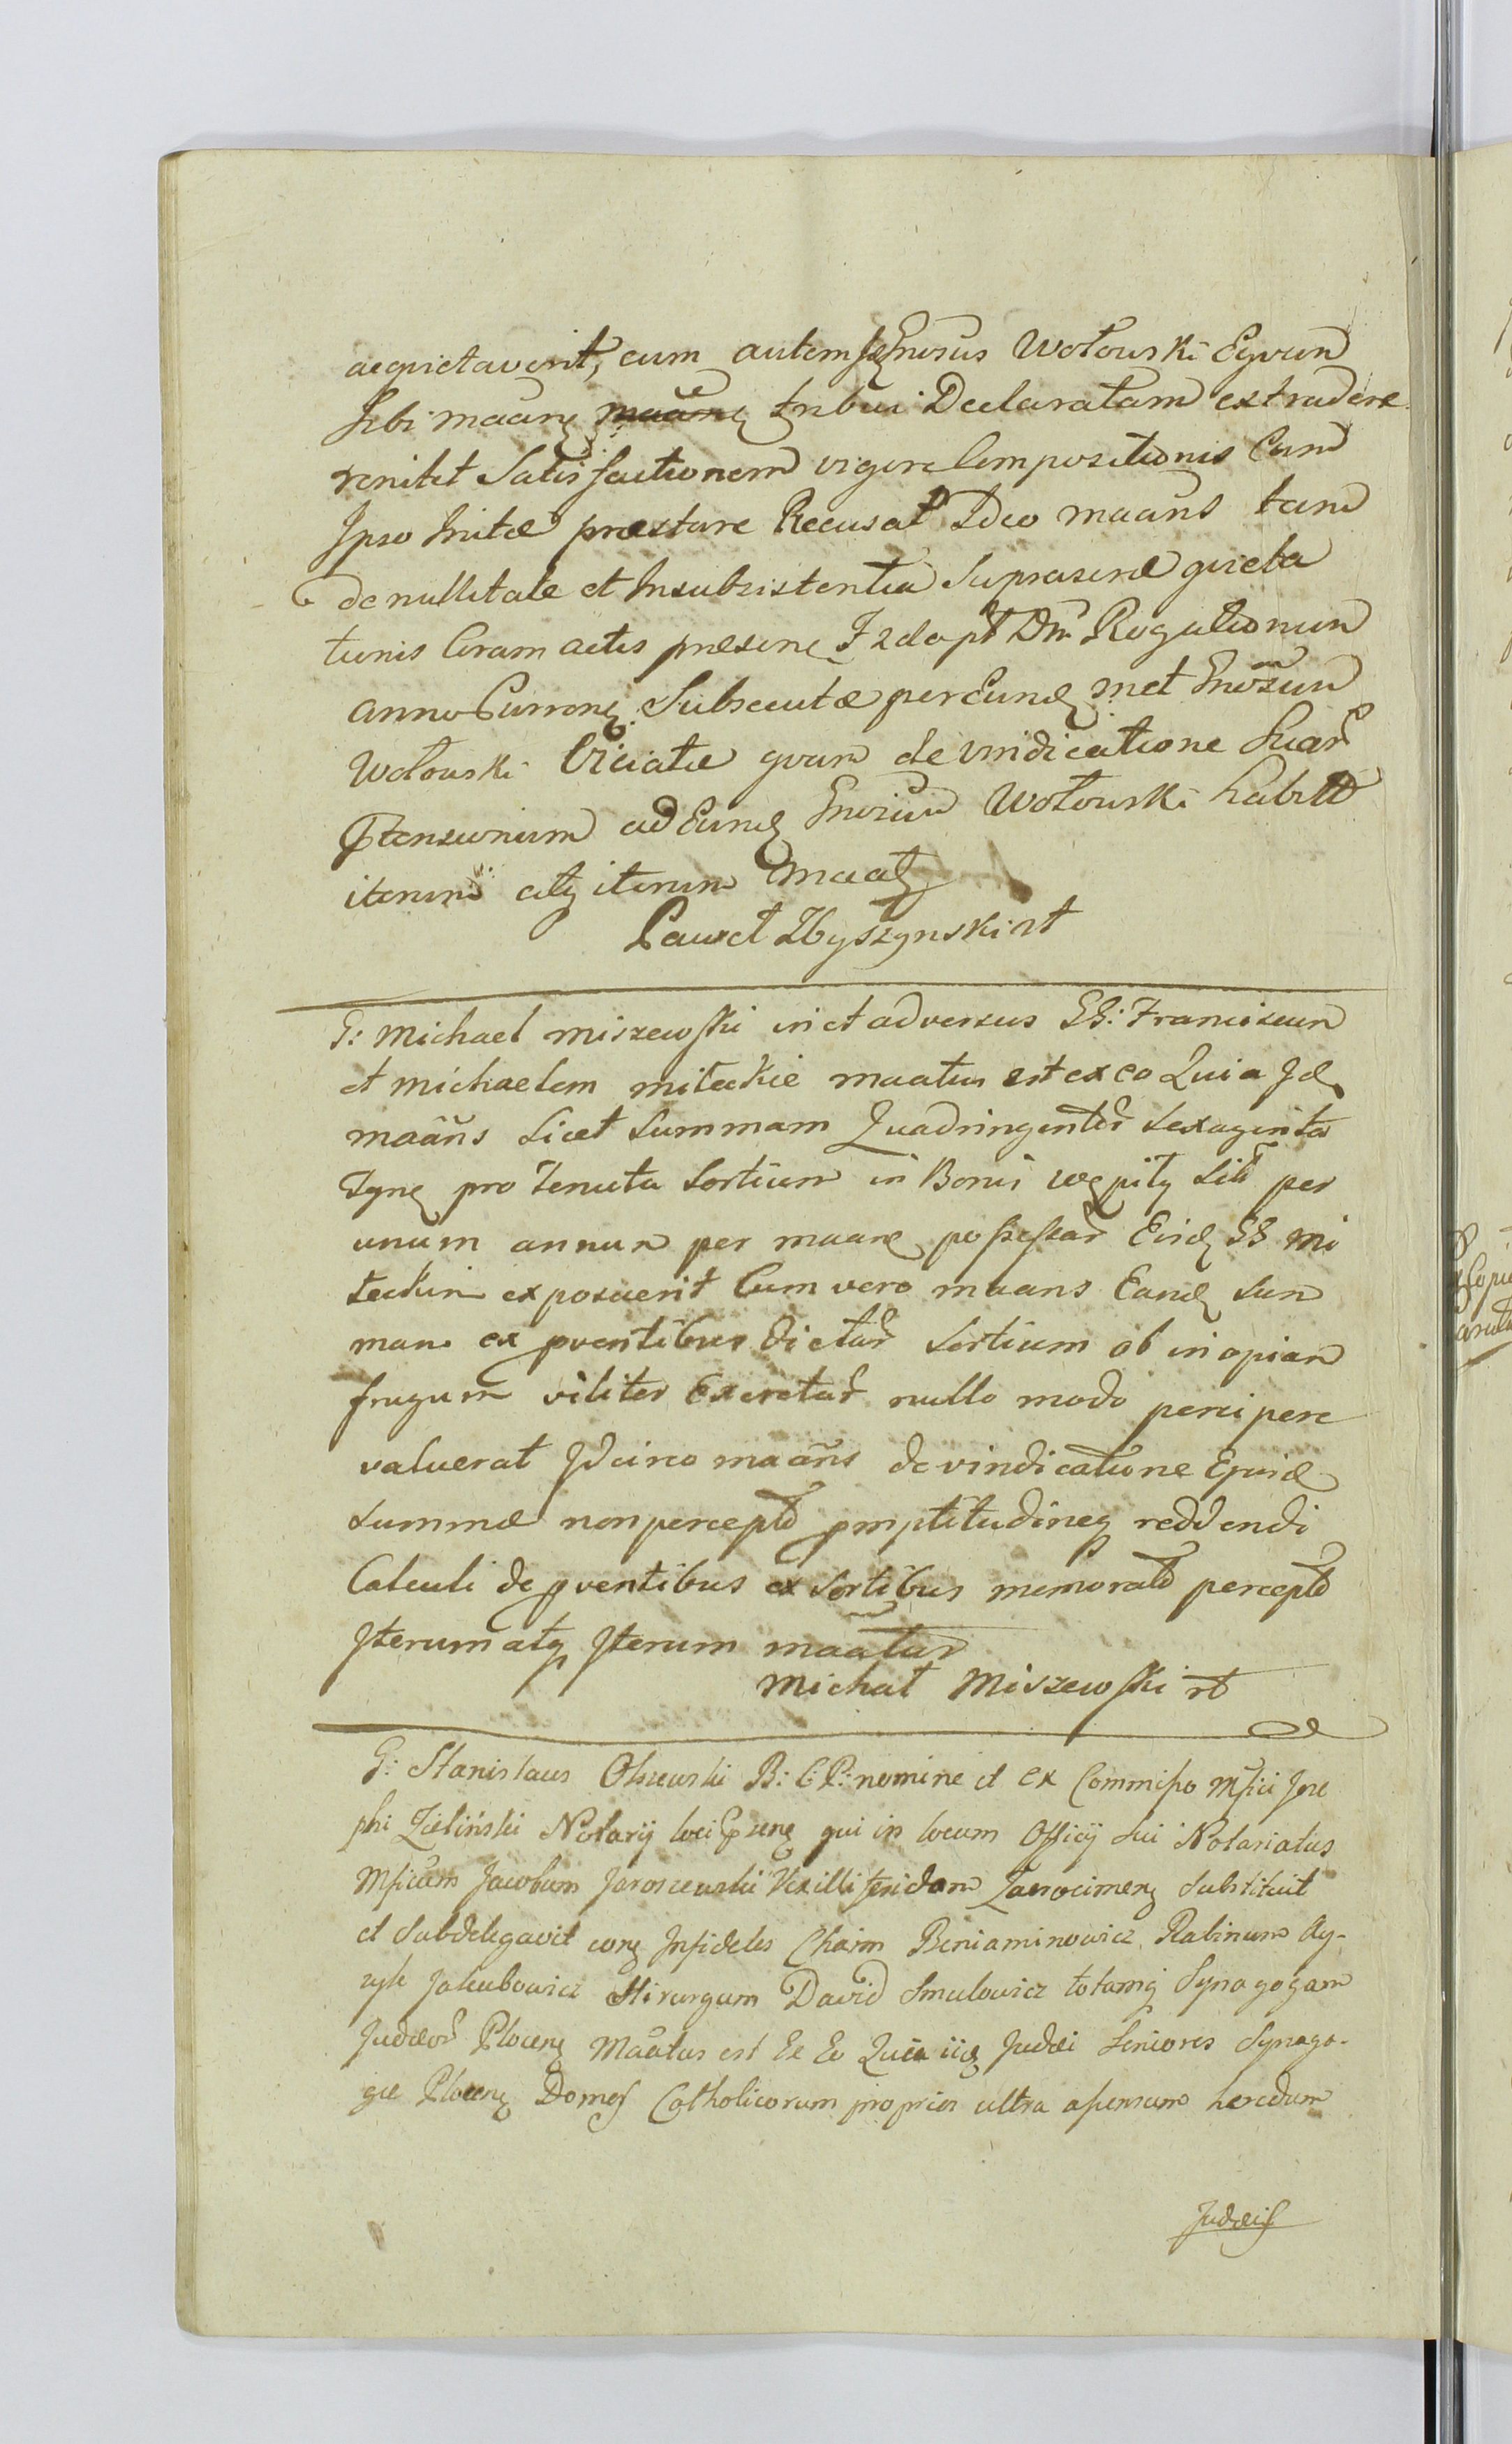 acquietaverit, cum autem Gnosus Wołowski Equum
Sibi maanẽ tribui Declaratam extradere
renitet Satisfactionem vigore Compositionis Cum
Ipso Initæ præstare Recusat Ideo maans tam
de nullitate et Insubsistentia Suprascræ quieta
tionis Coram actis præsenẽ Rogationum
anno Currenẽ Subsecutæ per Eundẽ met Gnosum
Wołowski Viciatæ quam de vindicatione Suar
Ptensionum ad Eundẽ Gnosum Wołowski habit
iterum atq iterum maat
Paweł Zbyszynski
G: Michael Miszewski in et adversus GG: Franciscum
et Michaelem miteckie maatus est ex eo Quia Id
maans licet Summam Quadringentor Sexaginta
Tynf pro Tenuta Sortium in Bonis Wępiły Sit per
unum annum per maanẽ possessar Eisd GG Mi
teckim exposuerit Cum vero maans Eand Sum
mam ex pventibus dictar Sortium ob inopiam
frugum viliter Excretar nullo modo percipere
valuerat Idcirco maans de vindicatione Ejusd
Summæ non percept pmptitudineq reddendi
Calculi de pventibus ex Sortibus memorat percept
Iterum atq Iterum maatur
Michał Miszewski
G: Stanislaus Olszewski B: C: P: nomine et ex Commisso Mfici Jose
phi Zieliński Notarij loci Psenẽ qui in locum Officij Sui Notariatus
Mficum Jacobum Jaroszewski Vexilliferidam Zawocimenẽ Substituit
et Subdelegavit corẽ Infideles Chaim Beniaminowicz Rabinum Ay-
zyk Jakubowicz Hirurgum David Smulowicz totamq Synagogam
Judæor Plocenẽ Maatus est Ex Eo Quia iid Judæi Seniores Synago-
gæ Plocenẽ Domos Catholicorum proprias ultra assensum heredum
Judæis